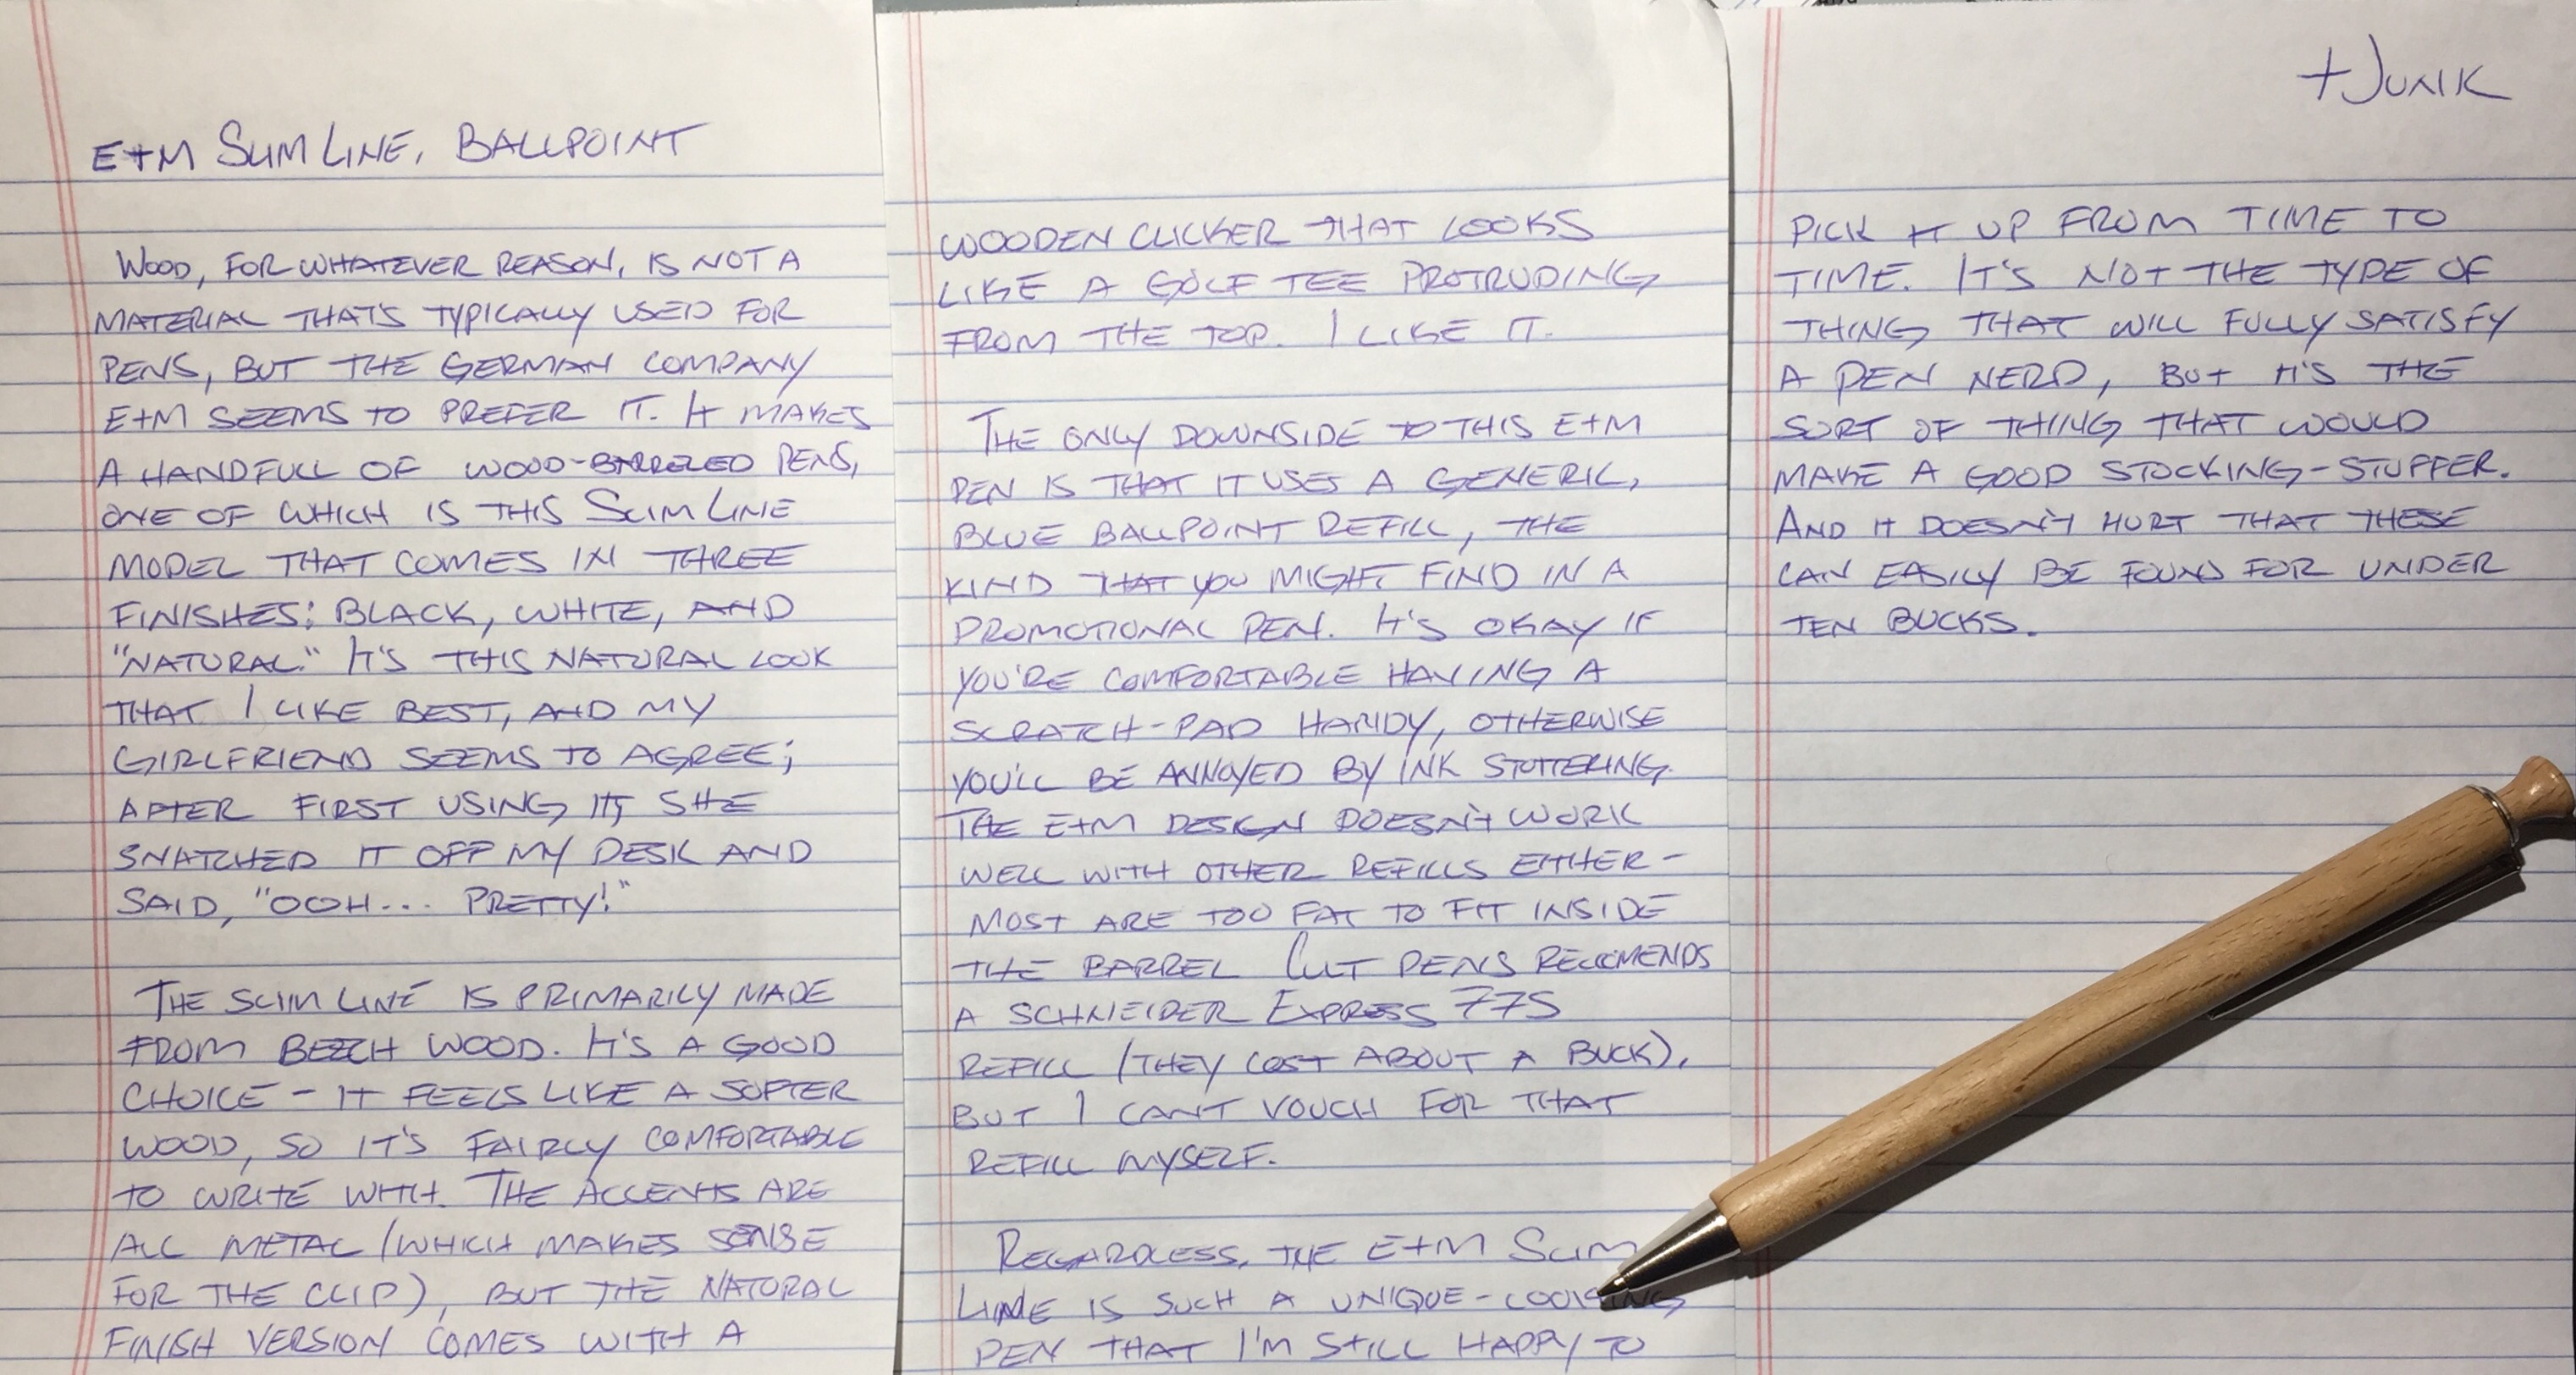 E+M SLIM LINE, BALLPOINT
WOOD, FOR WHATEVER REASON, IS NOT A
MATERIAL THAT'S TYPICALLY USED FOR
PENS, BUT THE GERMAN COMPANY
E+M SEEMS TO PREFER IT. IT MAKES
A HANDFULL OF WOOD-BARRELED PENS,
ONE OF WHICH IS THIS SLIM LINE
MODEL THAT COMES IN THREE
FINISHES: BLACK, WHITE, AND
"NATURAL." IT'S THIS NATURAL LOOK
THAT I LIKE BEST, AND MY
GIRLFRIEND SEEMS TO AGREE;
AFTER FIRST USING IT, SHE
SNATCHED IT OFF MY DESK AND
SAID, "OOH... PRETTY!"
THE SLIM LINE IS PRIMARILY MADE
FROM BEECH WOOD. IT'S A GOOD
CHOICE - IT FEELS LIKE A SOFTER
WOOD, SO IT'S FAIRLY COMFORTABLE
TO WRITE WITH. THE ACCENTS ARE
ALL METAL (WHICH MAKES SENSE
FOR THE CLIP), BUT THE NATURAL
FINISH VERSION COMES WITH A
WOODEN CLICKER THAT LOOKS
LIKE A GOLF TEE PROTRUDING
FROM THE TOP. I LIKE IT.
THE ONLY DOWNSIDE TO THIS E+M
PEN IS THAT IT USES A GENERIC,
BLUE BALLPOINT REFILL, THE
KIND THAT YOU MIGHT FIND IN A
PROMOTIONAL PEN. IT'S OKAY IF
YOU'RE COMFORTABLE HAVING A
SCRATCH-PAD HANDY, OTHERWISE
YOU'LL BE ANNOYED BY INK STUTTERING.
THE E+M DESIGN DOESN'T WORK
WELL WITH OTHER REFILLS EITHER -
MOST ARE TOO FAT TO FIT INSIDE
THE BARREL. CULT PENS RECOMENDS
A SCHNEIDER EXPRESS 775
REFILL (THEY COST ABOUT A BUCK),
BUT I CAN'T VOUCH FOR THAT
REFILL MYSELF.
REGARDLESS, THE E+M SLIM
LINE IS SUCH A UNIQUE-LOOKING
PEN THAT I'M STILL HAPPY TO
+JUNK
PICK IT UP FROM TIME TO
TIME. IT'S NOT THE TYPE OF
THING THAT WILL FULLY SATISFY
A PEN NERD, BUT IT'S THE
SORT OF THING THAT WOULD
MAKE A GOOD STOCKING-STUFFER.
AND IT DOESN'T HURT THAT THESE
CAN EASILY BE FOUND FOR UNDER
TEN BUCKS.